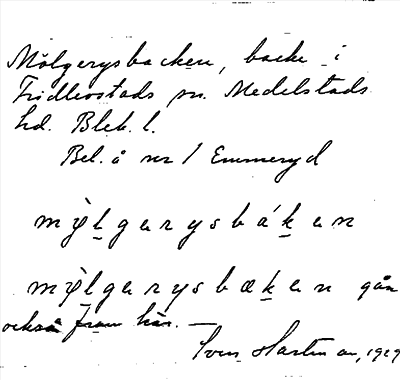 Mölgerysbacken, backe i
Fridlevstads sn. Medelstads
hd. Blek. l.
Bel. å nr 1 Emmeryd
mø̀l̠gerysbák̠en
mø̀l̠gerysbæk̠en går
också fram här. —
Sven Hartman, 1929